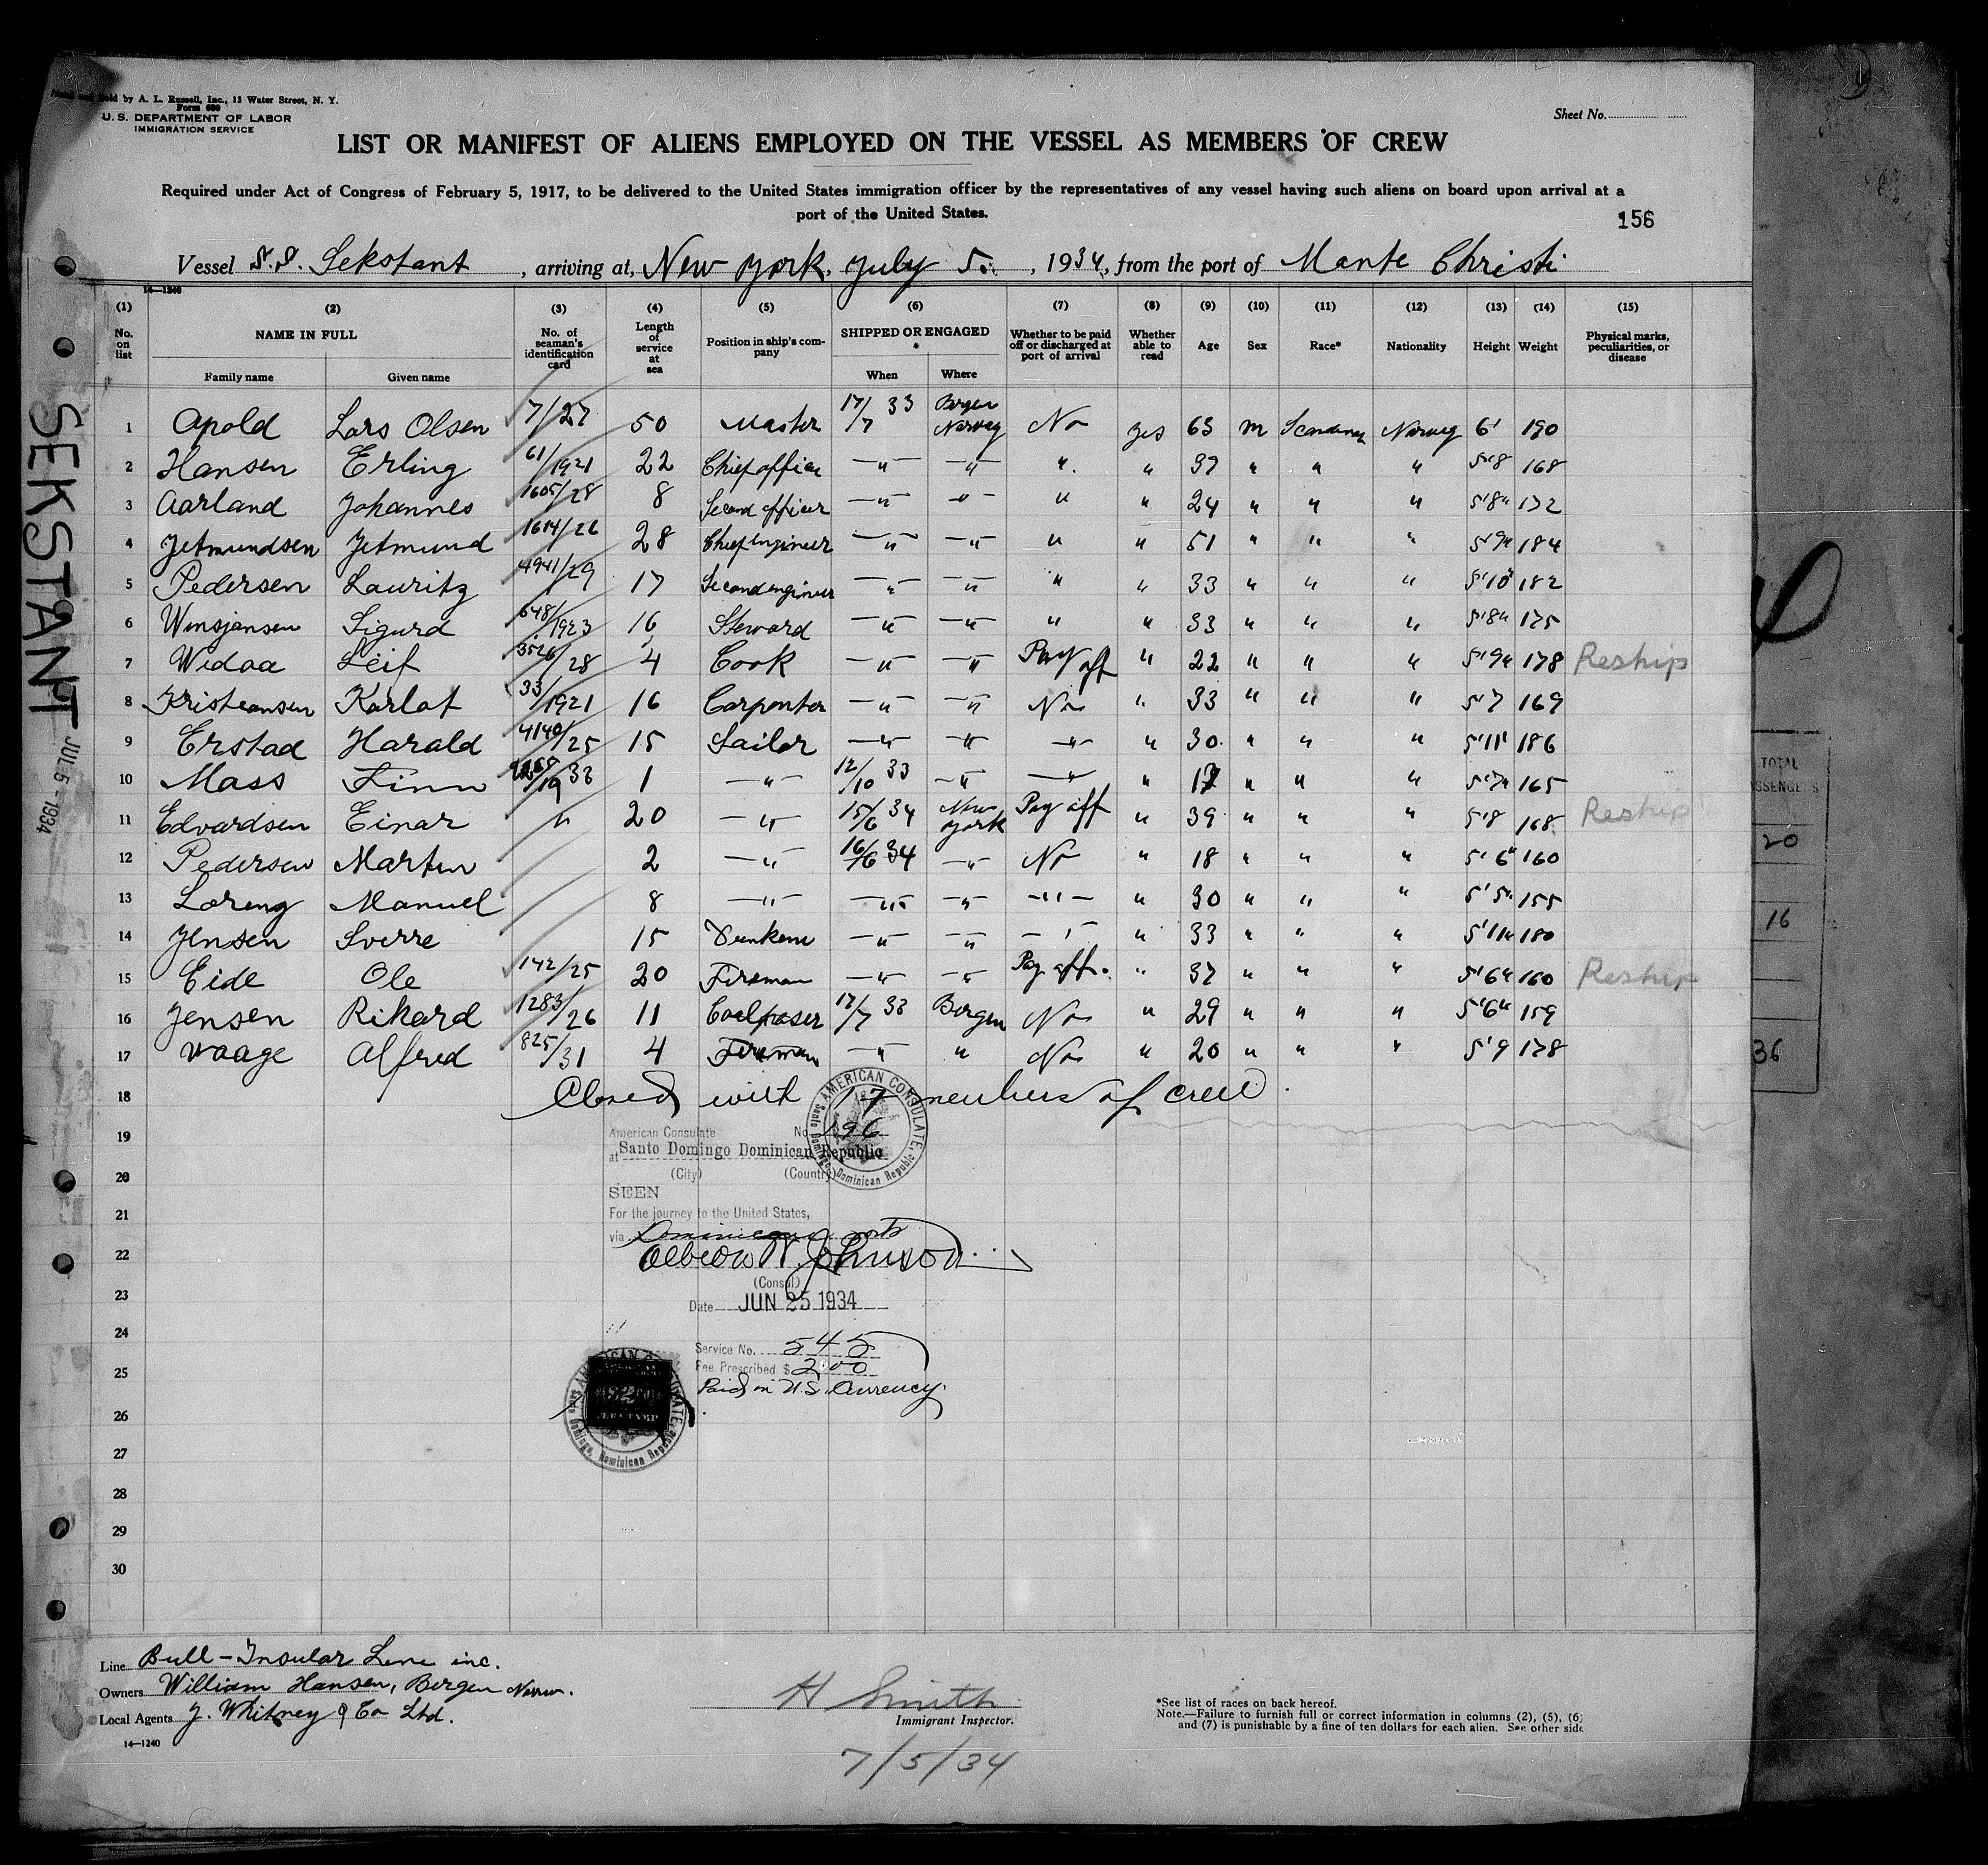 Sold by A. L. Russell, Inc., 13 Water Street, N. Y.
Form 680
U. S. DEPARTMENT OF LABOR
IMMIGRATION SERVICE
Sheet No.
LIST OR MANIFEST OF ALIENS EMPLOYED ON THE VESSEL AS MEMBERS OF CREW
Required under Act of Congress of February 5, 1917, to be delivered to the United States immigration officer by the representatives of any vessel having such aliens on board upon arrival at a
port of the United States.
156
Vessel S.S. Sekstant, arriving at, New York, July 5., 1934, from the port of Monte Christi
14—1240
(1) (2) (3) (4) (5) (6) (7) (8) (9) (10) (11) (12) (13) (14) (15)
No. on list NAME IN FULL Family name Given name No. of seaman's identification card Length of service at sea Position in ship's company SHIPPED OR ENGAGED * When Where Whether to be paid off or discharged at port of arrival Whether able to read Age Sex Race* Nationality Height Weight Physical marks, peculiarities, or disease
1 Apold Lars Olsen 7/27 50 Master 17/7 33 Bergen Norway No yes 63 m Scandinav Norweg 6' 190
2 Hansen Erling 61/1921 22 Chief officer —"— —"— " " 37 " " " 5'8 168
3 Aarland Johannes 1605/28 8 Second officer —"— —"— " " 24 " " " 5'8" 172
4 Jetmundsen Jetmund 1614/26 28 Chief engineer —"— —"— " " 51 " " " 5'9" 184
5 Pedersen Lauritz 4941/29 17 Second engineer —"— —"— " " 33 " " " 5'10" 182
6 Winsjansen Sigurd 648/1923 16 Steward —"— —"— " " 33 " " " 5'8" 175
7 Widaa Leif 3526/28 4 Cook —"— —"— Pay off " 22 " " " 5'9" 178 Reship
8 Kristiansen Karlot 33/1921 16 Carpenter —"— —"— No " 33 " " " 5'7 169
9 Erstad Harald 4140/25 15 Sailor —"— —"— —"— " 30 " " " 5'11' 186
10 Mass Finn 1 —"— 12/10 33 —"— —"— " 17 " " " 5'7" 165
11 Edvardsen Einar " 20 —"— 15/6 34 New York Pay off " 39 " " " 5'8 168 Reship
12 Pedersen Martin 2 —"— 16/6 34 —"— No " 18 " " " 5'6" 160
13 Loreng Manuel 8 —"— —"— —"— —"— " 30 " " " 5'5" 155
14 Jensen Sverre 15 —"— —"— —"— " 33 " " " 5'11" 180
15 Eide Ole 142/25 20 Fireman —"— —"— Pay off. " 37 " " " 5'6" 160 Reship
16 Jensen Rikard 1283/26 11 Coalpaser 17/7 33 Bergen No " 29 " " " 5'6" 159
17 Waage Alfred 825/31 4 Fireman —"— " No " 20 " " " 5'9 178
18 Closed with 17 members of crew.
19
20
21
22
23
24
25
26
27
28
29
30
AMERICAN CONSULATE, Santo Domingo, Dominican Republic
American Consulate No. 196
at Santo Domingo Dominican Republic
(City) (Country)
SEEN
For the journey to the United States,
via Dominican ports
Albion W. Johnson
(Consul)
Date JUN 25 1934
Service No. 545
Fee Prescribed $ 2.00
Paid in U.S. Currency.
AMERICAN CONSULATE, Santo Domingo, Dominican Republic
Line Bull-Insular Line inc.
Owners William Hansen, Bergen Norw.
Local Agents J. Whitney & Co Ltd.
14—1240
H Smith
Immigrant Inspector.
7/5/34
*See list of races on back hereof.
Note.—Failure to furnish full or correct information in columns (2), (5), (6)
and (7) is punishable by a fine of ten dollars for each alien. See other side
SEKSTANT
JUL 5 - 1934
TOTAL
20
16
36